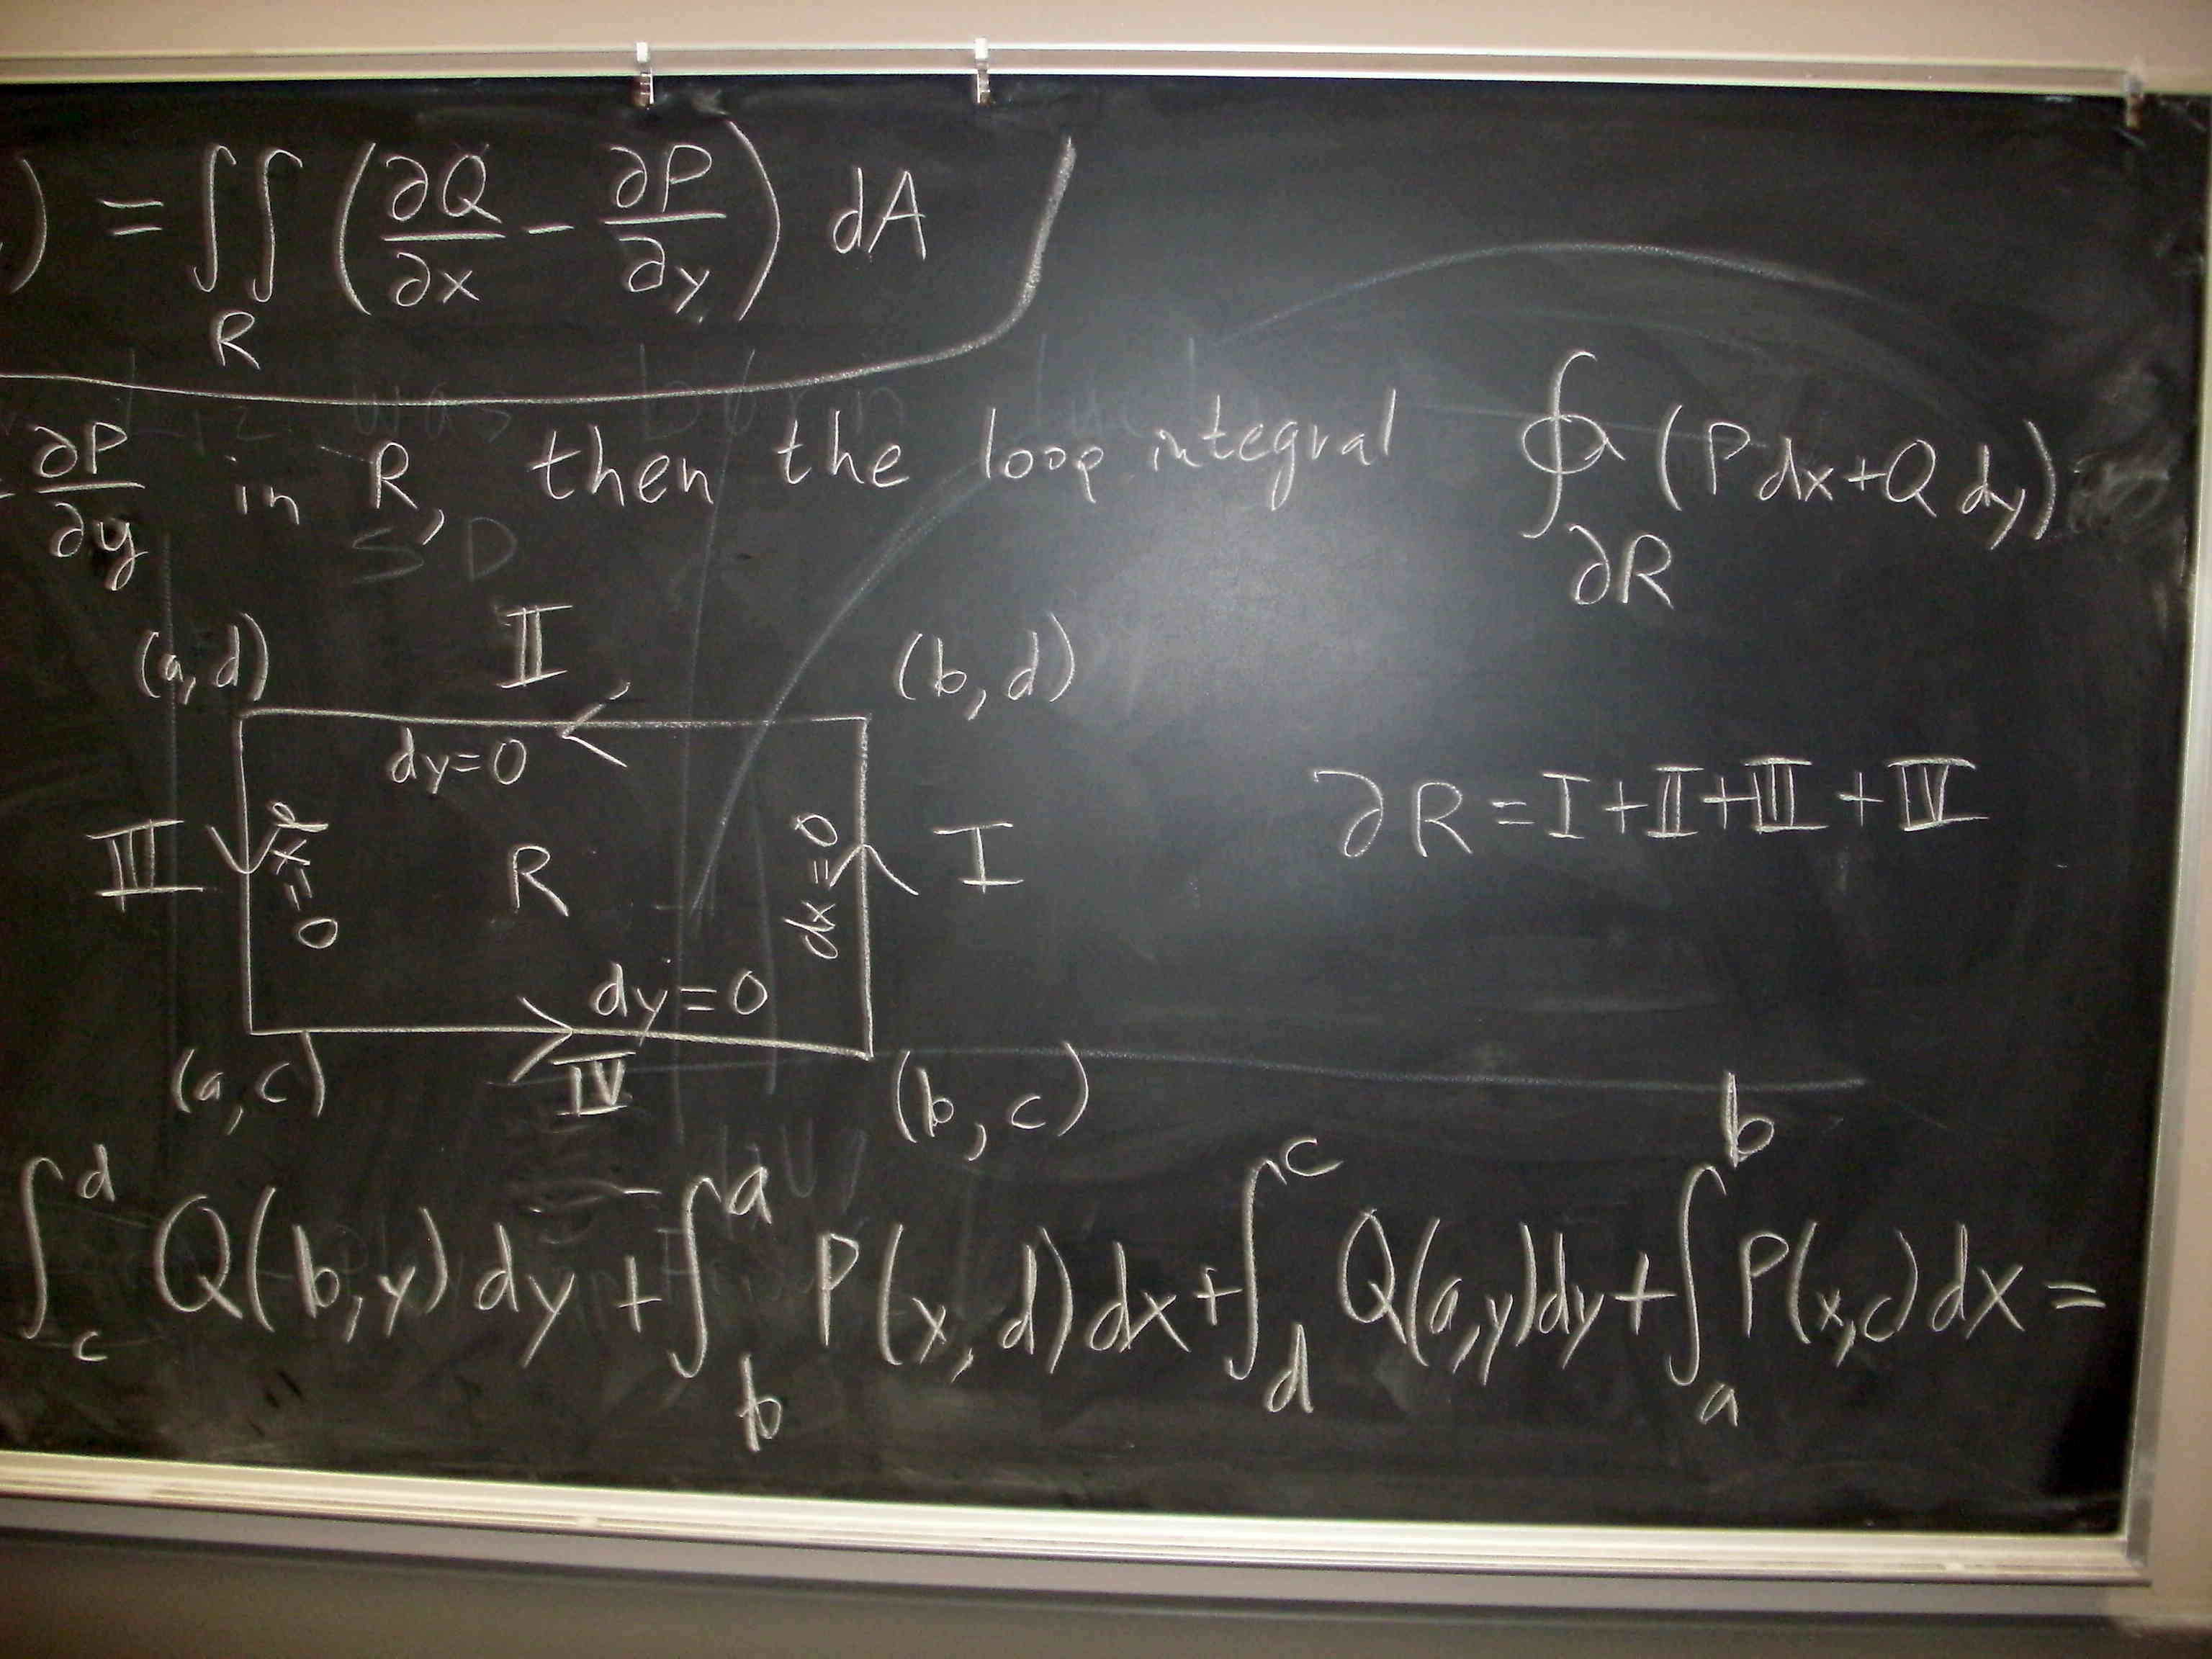 ) = ∬_R (∂Q/∂x - ∂P/∂y) dA
∂P/∂y in R, then the loop integral ∮_∂R (P dx + Q dy)
(a,d) II (b,d)
dy=0
III dx=0 R dx=0 I ∂R = I + II + III + IV
dy=0
(a,c) IV (b,c)
∫_c^d Q(b,y) dy + ∫_b^a P(x,d) dx + ∫_d^c Q(a,y) dy + ∫_a^b P(x,c) dx =